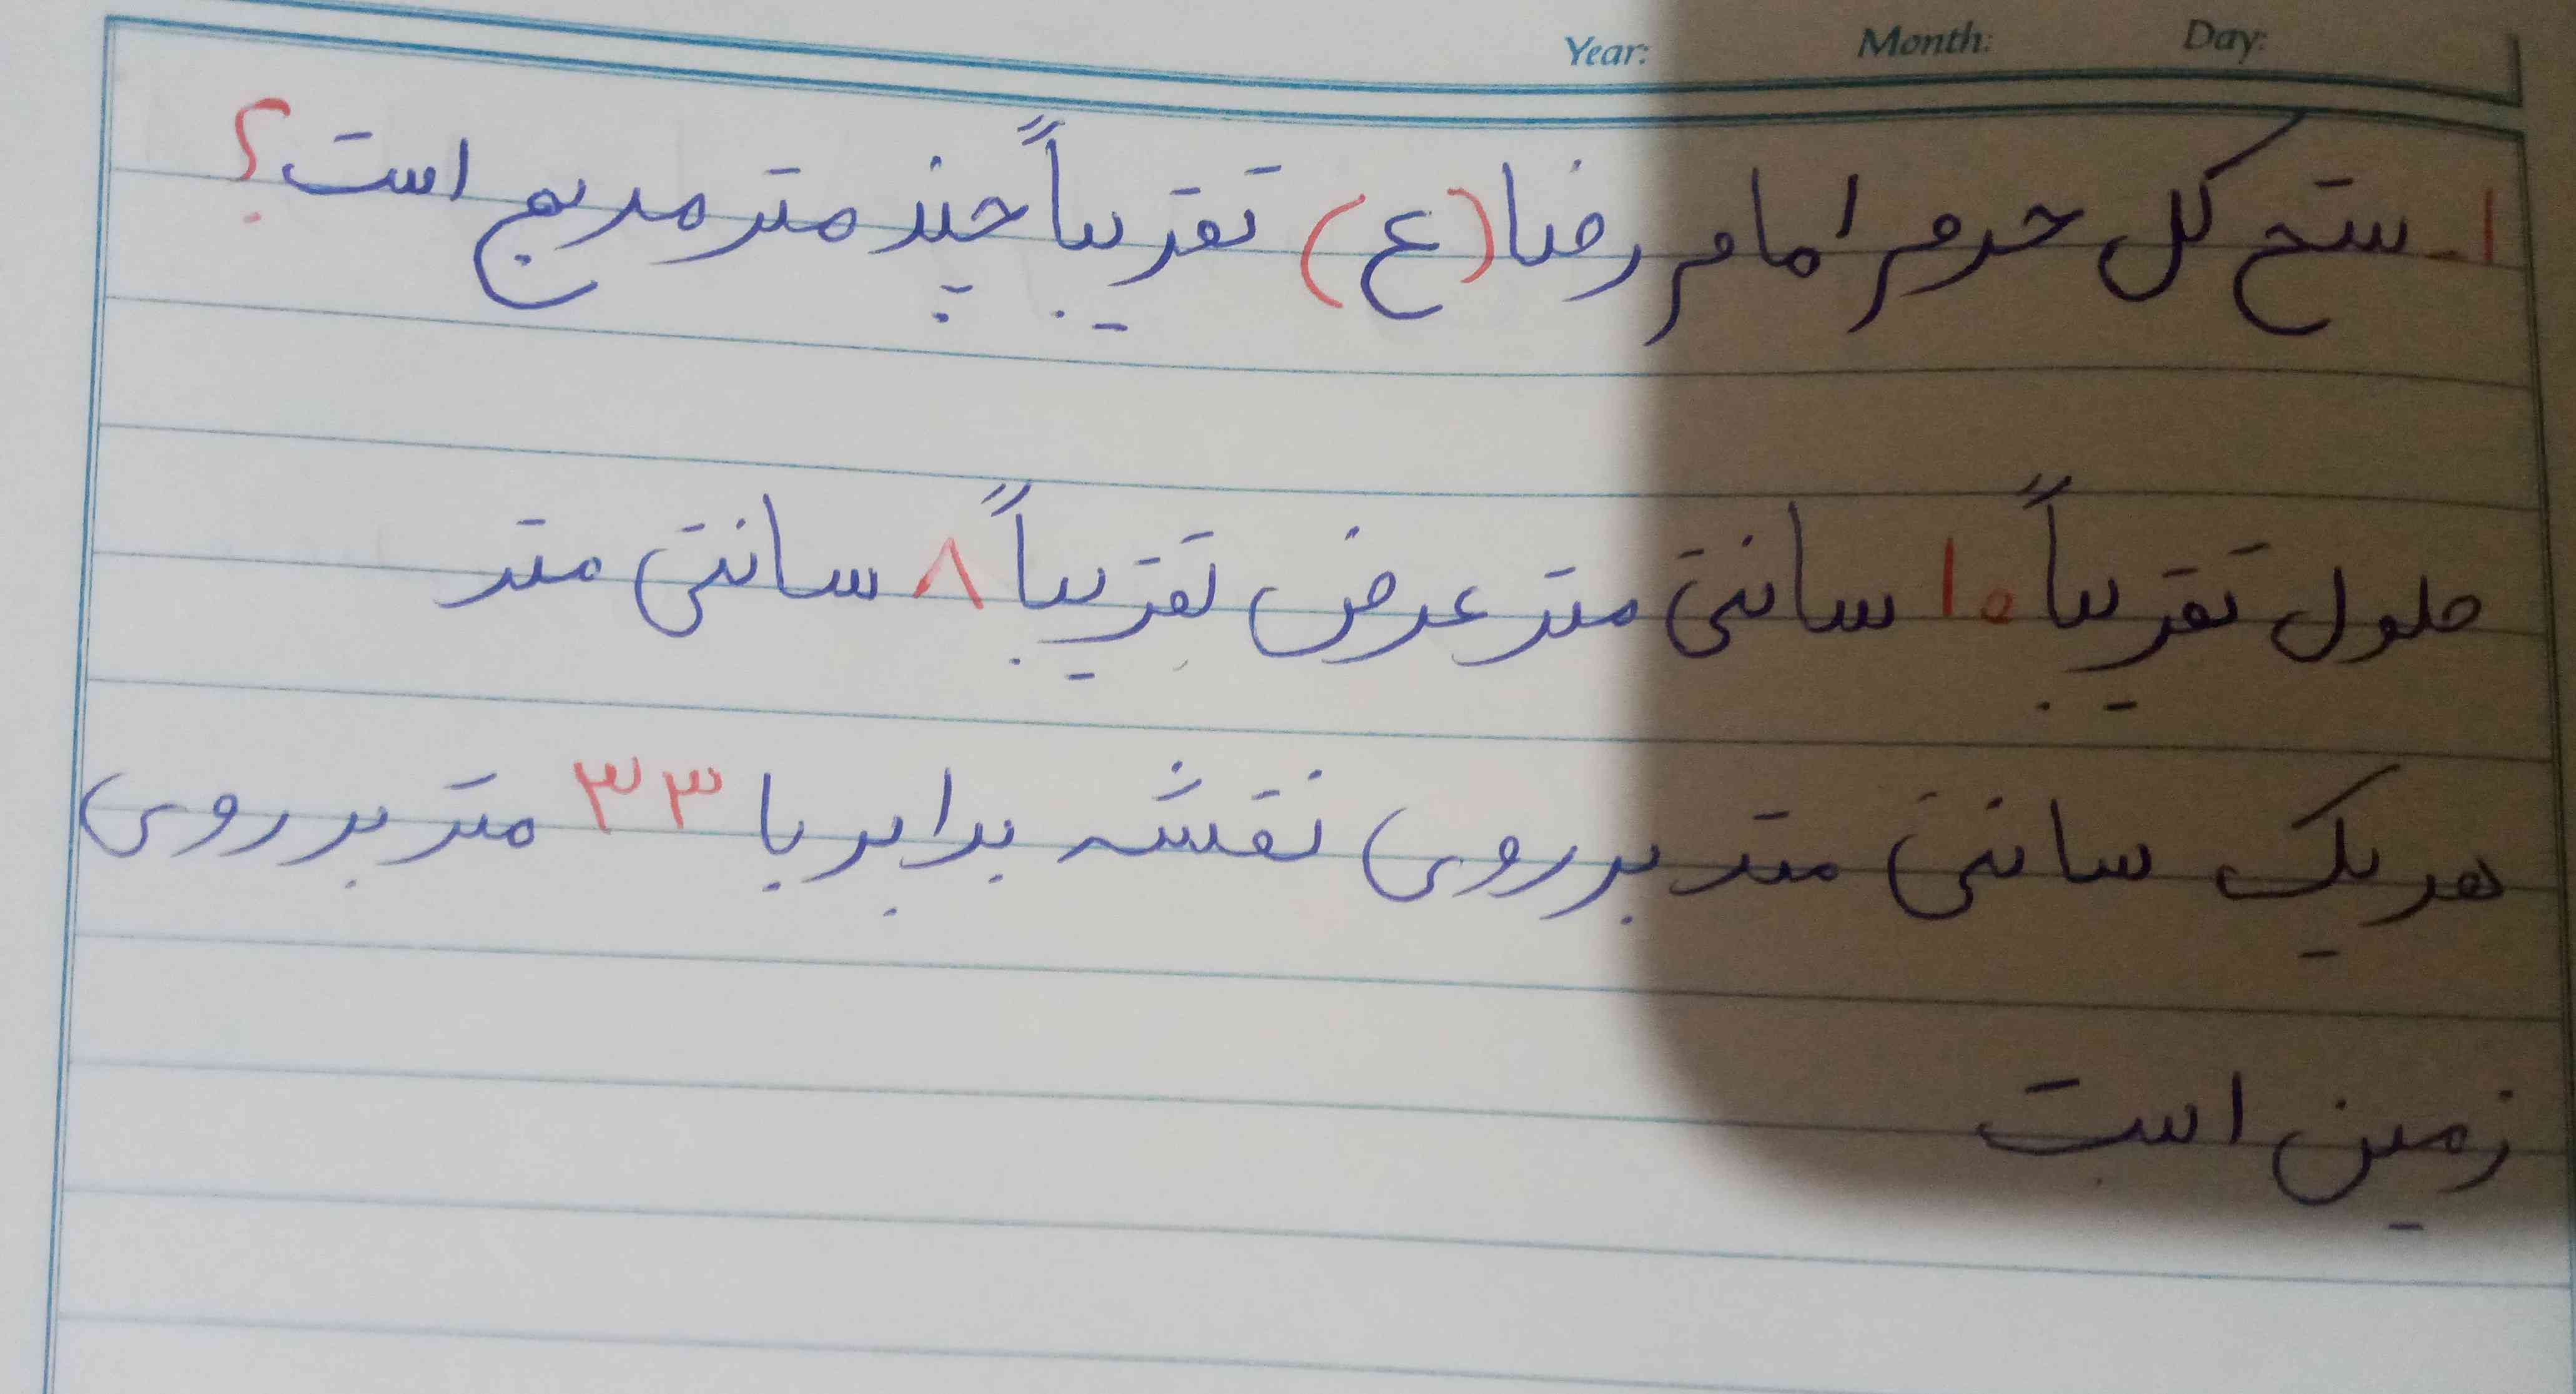 Year: Month: Day:
۱- ستح کل حرم امام رضا (ع) تقریباً چند متر مربع است؟
طول تقریباً ۱۰ سانتی متر عرض تقریباً ۸ سانتی متر
هر یک سانتی متر بر روی نقشه برابر با ۳۳ متر بر روی
زمین است